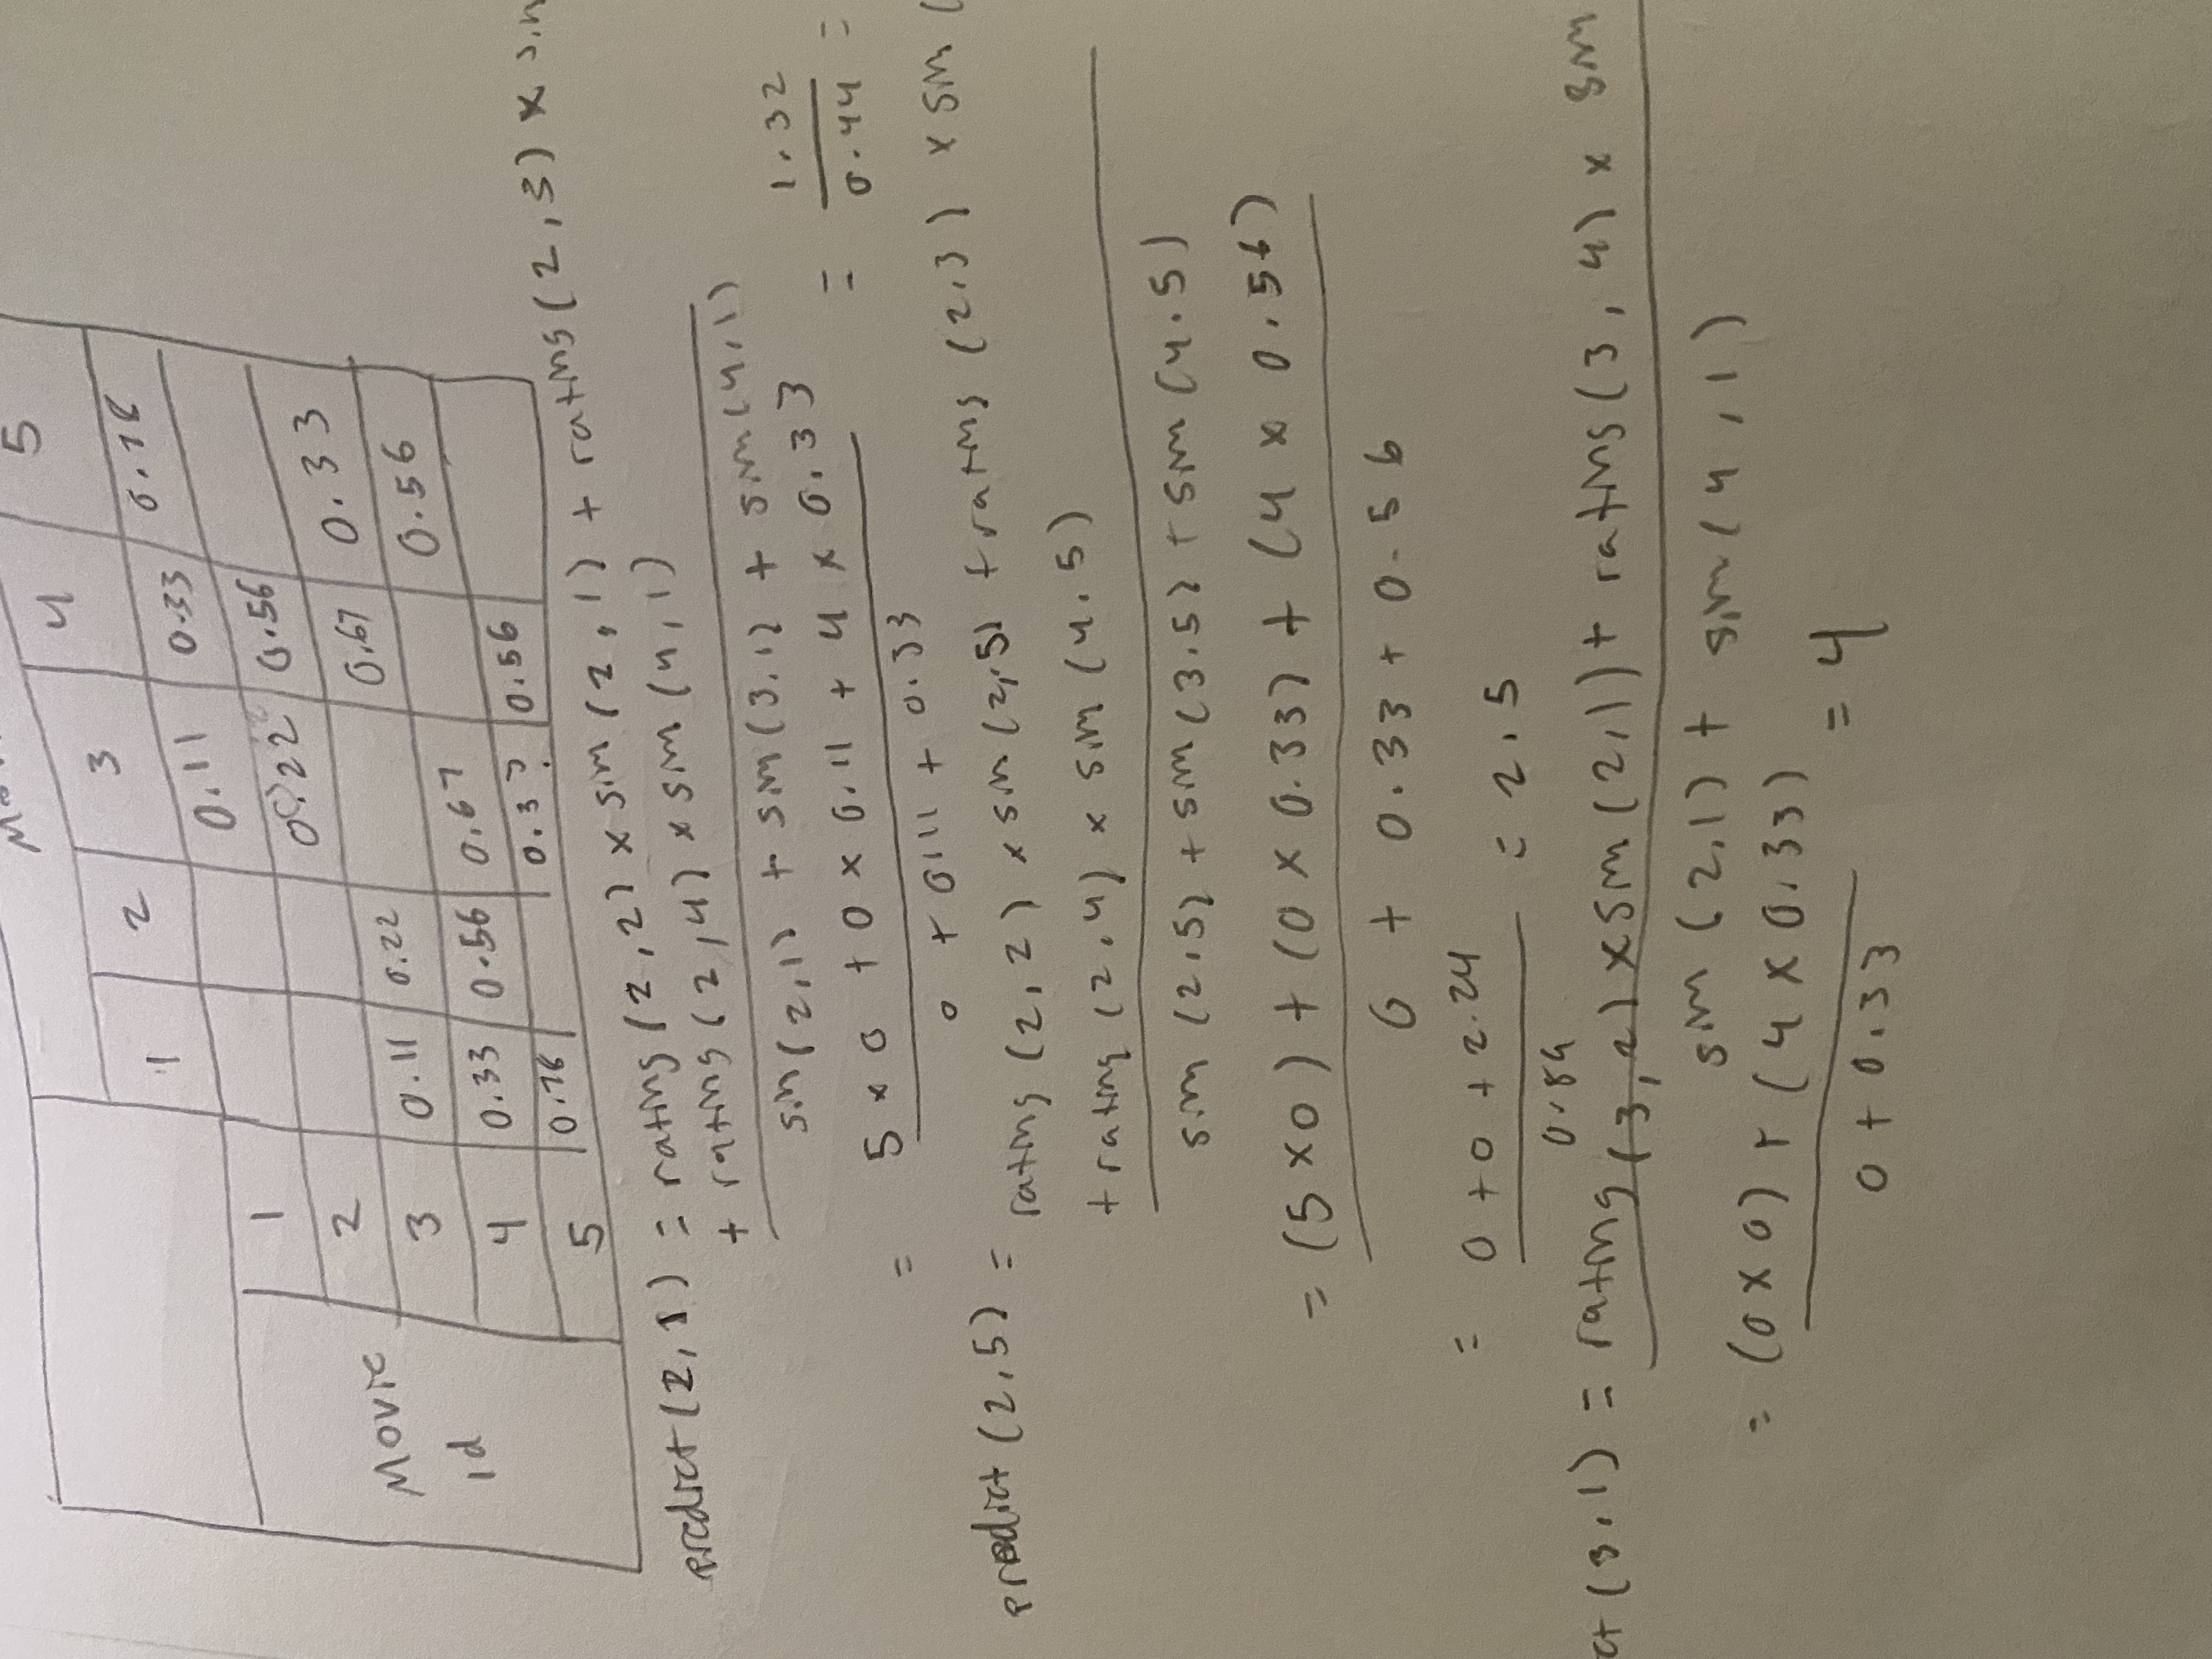 5
4
3
2
1
0.11 0.33 0.78
1
0.22 0.56
2
Movie id
0.67 0.33
3 0.11 0.22
0.56
4 0.33 0.56 0.67
5 0.78 0.3? 0.56
predict (2,1) = rating (2,2) x sim (2,1) + rating (2,3) x
+ rating (2,4) x sim (4,1)
sim (2,1) + sim (3,1) + sim (4,1)
= 5 x 0 + 0 x 0.11 + 4 x 0.33 = 1.32
0 + 0.11 + 0.33 0.44 =
predict (2,5) = rating (2,2) x sim (2,5) + rating (2,3) x sim (
+ rating (2,4) x sim (4.5)
sim (2.5) + sim (3.5) + sim (4.5)
= (5 x 0) + (0 x 0.33) + (4 x 0.56)
0 + 0.33 + 0.56
= 0 + 0 + 2.24 = 2.5
0.89
ct (3,1) = rating (3,2) x sim (2,1) + rating (3,4) x sim
sim (2,1) + sim (4,1)
= (0 x 0) + (4 x 0.33) = 4
0 + 0.33